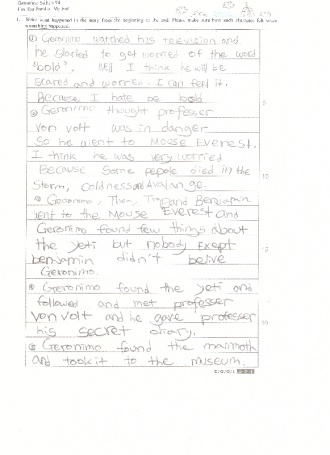 1. Write what happened in the story from the beginning to the end. Please make sure how each character felt when
something happened.
① Geronimo watched his television and
he started to get worried of the word
"bold". Well I think he will be
scared and worried. I can feel it.
Because I hate be bold
② Geronimo thought professor
von volt was in danger
So he went to Mouse Everest.
I think he was very worried
Because Some pepole died in the
Storm, Coldness and Avalange.
③ Geronimo, Thea, Trap and Benjamin
went to the Mouse Everest and
Geronimo found few things about
the yeti but nobody exept
benjamin didn't belive
Geronimo.
④ Geronimo found the yeti and
followed and met professor
Von volt and he gave professor
his secret diary.
⑤ Geronimo found the mammoth
and took it to the museum.
5
10
15
20